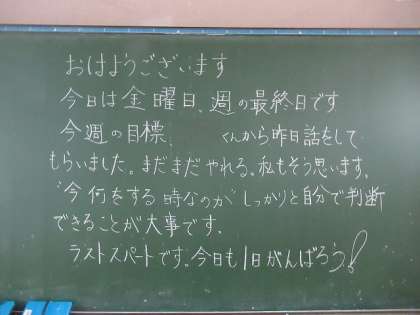 おはようございます
今日は金曜日、週の最終日です
今週の目標、 くんから昨日話をして
もらいました。まだまだやれる。私もそう思います。
"今何をする時なのか"しっかりと自分で判断
できることが大事です。
ラストスパートです。今日も1日がんばろう!